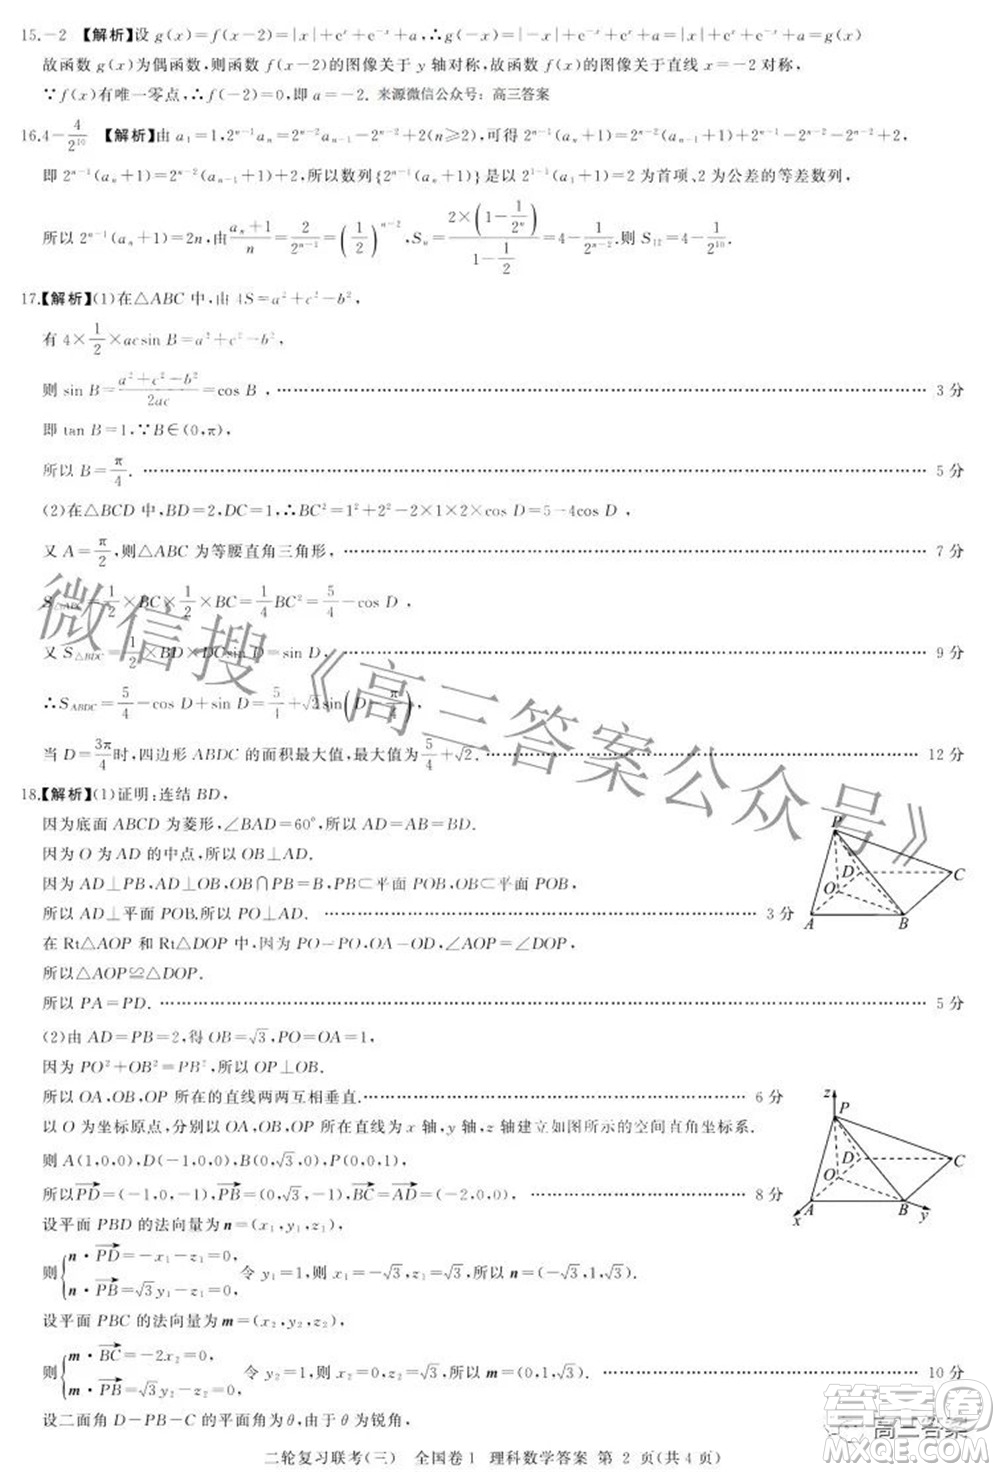 15.－2 【解析】设 g(x)＝f(x－2)＝|x|＋eˣ＋e⁻ˣ＋a,∴g(－x)＝|－x|＋e⁻ˣ＋eˣ＋a＝g(x)
故函数 g(x)为偶函数,则函数 f(x－2)的图像关于 y 轴对称,所以函数 f(x)的图像关于直线 x＝－2 对称,
∵f(x)有唯一零点,∴f(－2)＝0,即 a＝－2. 来源微信公众号：高三答案
16.4－4/2¹⁰ 【解析】由 a₁＝1,2ⁿ⁻¹aₙ＝2ⁿ⁻²aₙ₋₁－2ⁿ⁻²＋2(n≥2),可得 2ⁿ⁻¹(aₙ＋1)＝2ⁿ⁻²(aₙ₋₁＋1)＋2ⁿ⁻¹－2ⁿ⁻²－2ⁿ⁻²＋2,
即 2ⁿ⁻¹(aₙ＋1)＝2ⁿ⁻²(aₙ₋₁＋1)＋2,所以数列{2ⁿ⁻¹(aₙ＋1)}是以 2¹⁻¹(a₁＋1)＝2 为首项、2 为公差的等差数列,
所以 2ⁿ⁻¹(aₙ＋1)＝2n,由(aₙ＋1)/n＝2/2ⁿ⁻¹＝(1/2)ⁿ⁻²,Sₙ＝2×(1－1/2ⁿ)/(1－1/2)＝4－1/2ⁿ⁻².则 S₁₂＝4－1/2¹⁰.
17.【解析】(1)在△ABC 中,由 4S＝a²＋c²－b²,
有 4×1/2×acsin B＝a²＋c²－b²,
则 sin B＝(a²＋c²－b²)/2ac＝cos B , 3 分
即 tan B＝1,∵B∈(0,π),
所以 B＝π/4. 5 分
(2)在△BCD 中,BD＝2,DC＝1,∴BC²＝1²＋2²－2×1×2×cos D＝5－4cos D ,
又 A＝π/2,则△ABC 为等腰直角三角形, 7 分
S△ABC＝1/2×BC×1/2×BC＝1/4BC²＝5/4－cos D ,
又 S△BDC＝1/2×BD×DCsin D＝sin D, 9 分
∴S_ABDC＝5/4－cos D＋sin D＝5/4＋√2sin(D－π/4),
当 D＝3π/4时,四边形 ABDC 的面积最大值,最大值为5/4＋√2. 12 分
18.【解析】(1)证明:连结 BD,
因为底面 ABCD 为菱形,∠BAD＝60°,所以 AD＝AB＝BD.
因为 O 为 AD 的中点,所以 OB⊥AD.
因为 AD⊥PB,AD⊥OB,OB∩PB＝B,OB,PB⊂平面 POB,
所以 AD⊥平面 POB,所以 PO⊥AD. 3 分
在 Rt△AOP 和 Rt△DOP 中,因为 PO＝PO,OA＝OD,∠AOP＝∠DOP,
所以△AOP≌△DOP.
所以 PA＝PD. 5 分
P
D
C
O
A
B
(2)由 AD＝PB＝2,得 OB＝√3,PO＝OA＝1,
因为 PO²＋OB²＝PB²,所以 OP⊥OB.
所以 OA,OB,OP 所在的直线两两互相垂直. 6 分
以 O 为坐标原点,分别以 OA,OB,OP 所在直线为 x 轴,y 轴,z 轴建立如图所示的空间直角坐标系.
则 A(1,0,0),D(－1,0,0),B(0,√3,0),P(0,0,1)
所以PD＝(－1,0,－1),PB＝(0,√3,－1),BC＝AD＝(－2,0,0), 8 分
z
P
D
C
O
A
B
x
y
设平面 PBD 的法向量为 n＝(x₁,y₁,z₁),
则{n·PD＝－x₁－z₁＝0, n·PB＝√3y₁－z₁＝0, 令 y₁＝1,则 x₁＝－√3,z₁＝√3,所以 n＝(－√3,1,√3).
设平面 PBC 的法向量为 m＝(x₂,y₂,z₂),
则{m·BC＝－2x₂＝0, m·PB＝√3y₂－z₂＝0, 令 y₂＝1,则 x₂＝0,z₂＝√3,所以 m＝(0,1,√3) 10 分
设二面角 D－PB－C 的平面角为θ,由于θ为锐角,
二轮复习联考(三) 全国卷 1 理科数学答案 第 2 页(共 4 页)
微信搜《高三答案公众号》
答案圈
高三答案